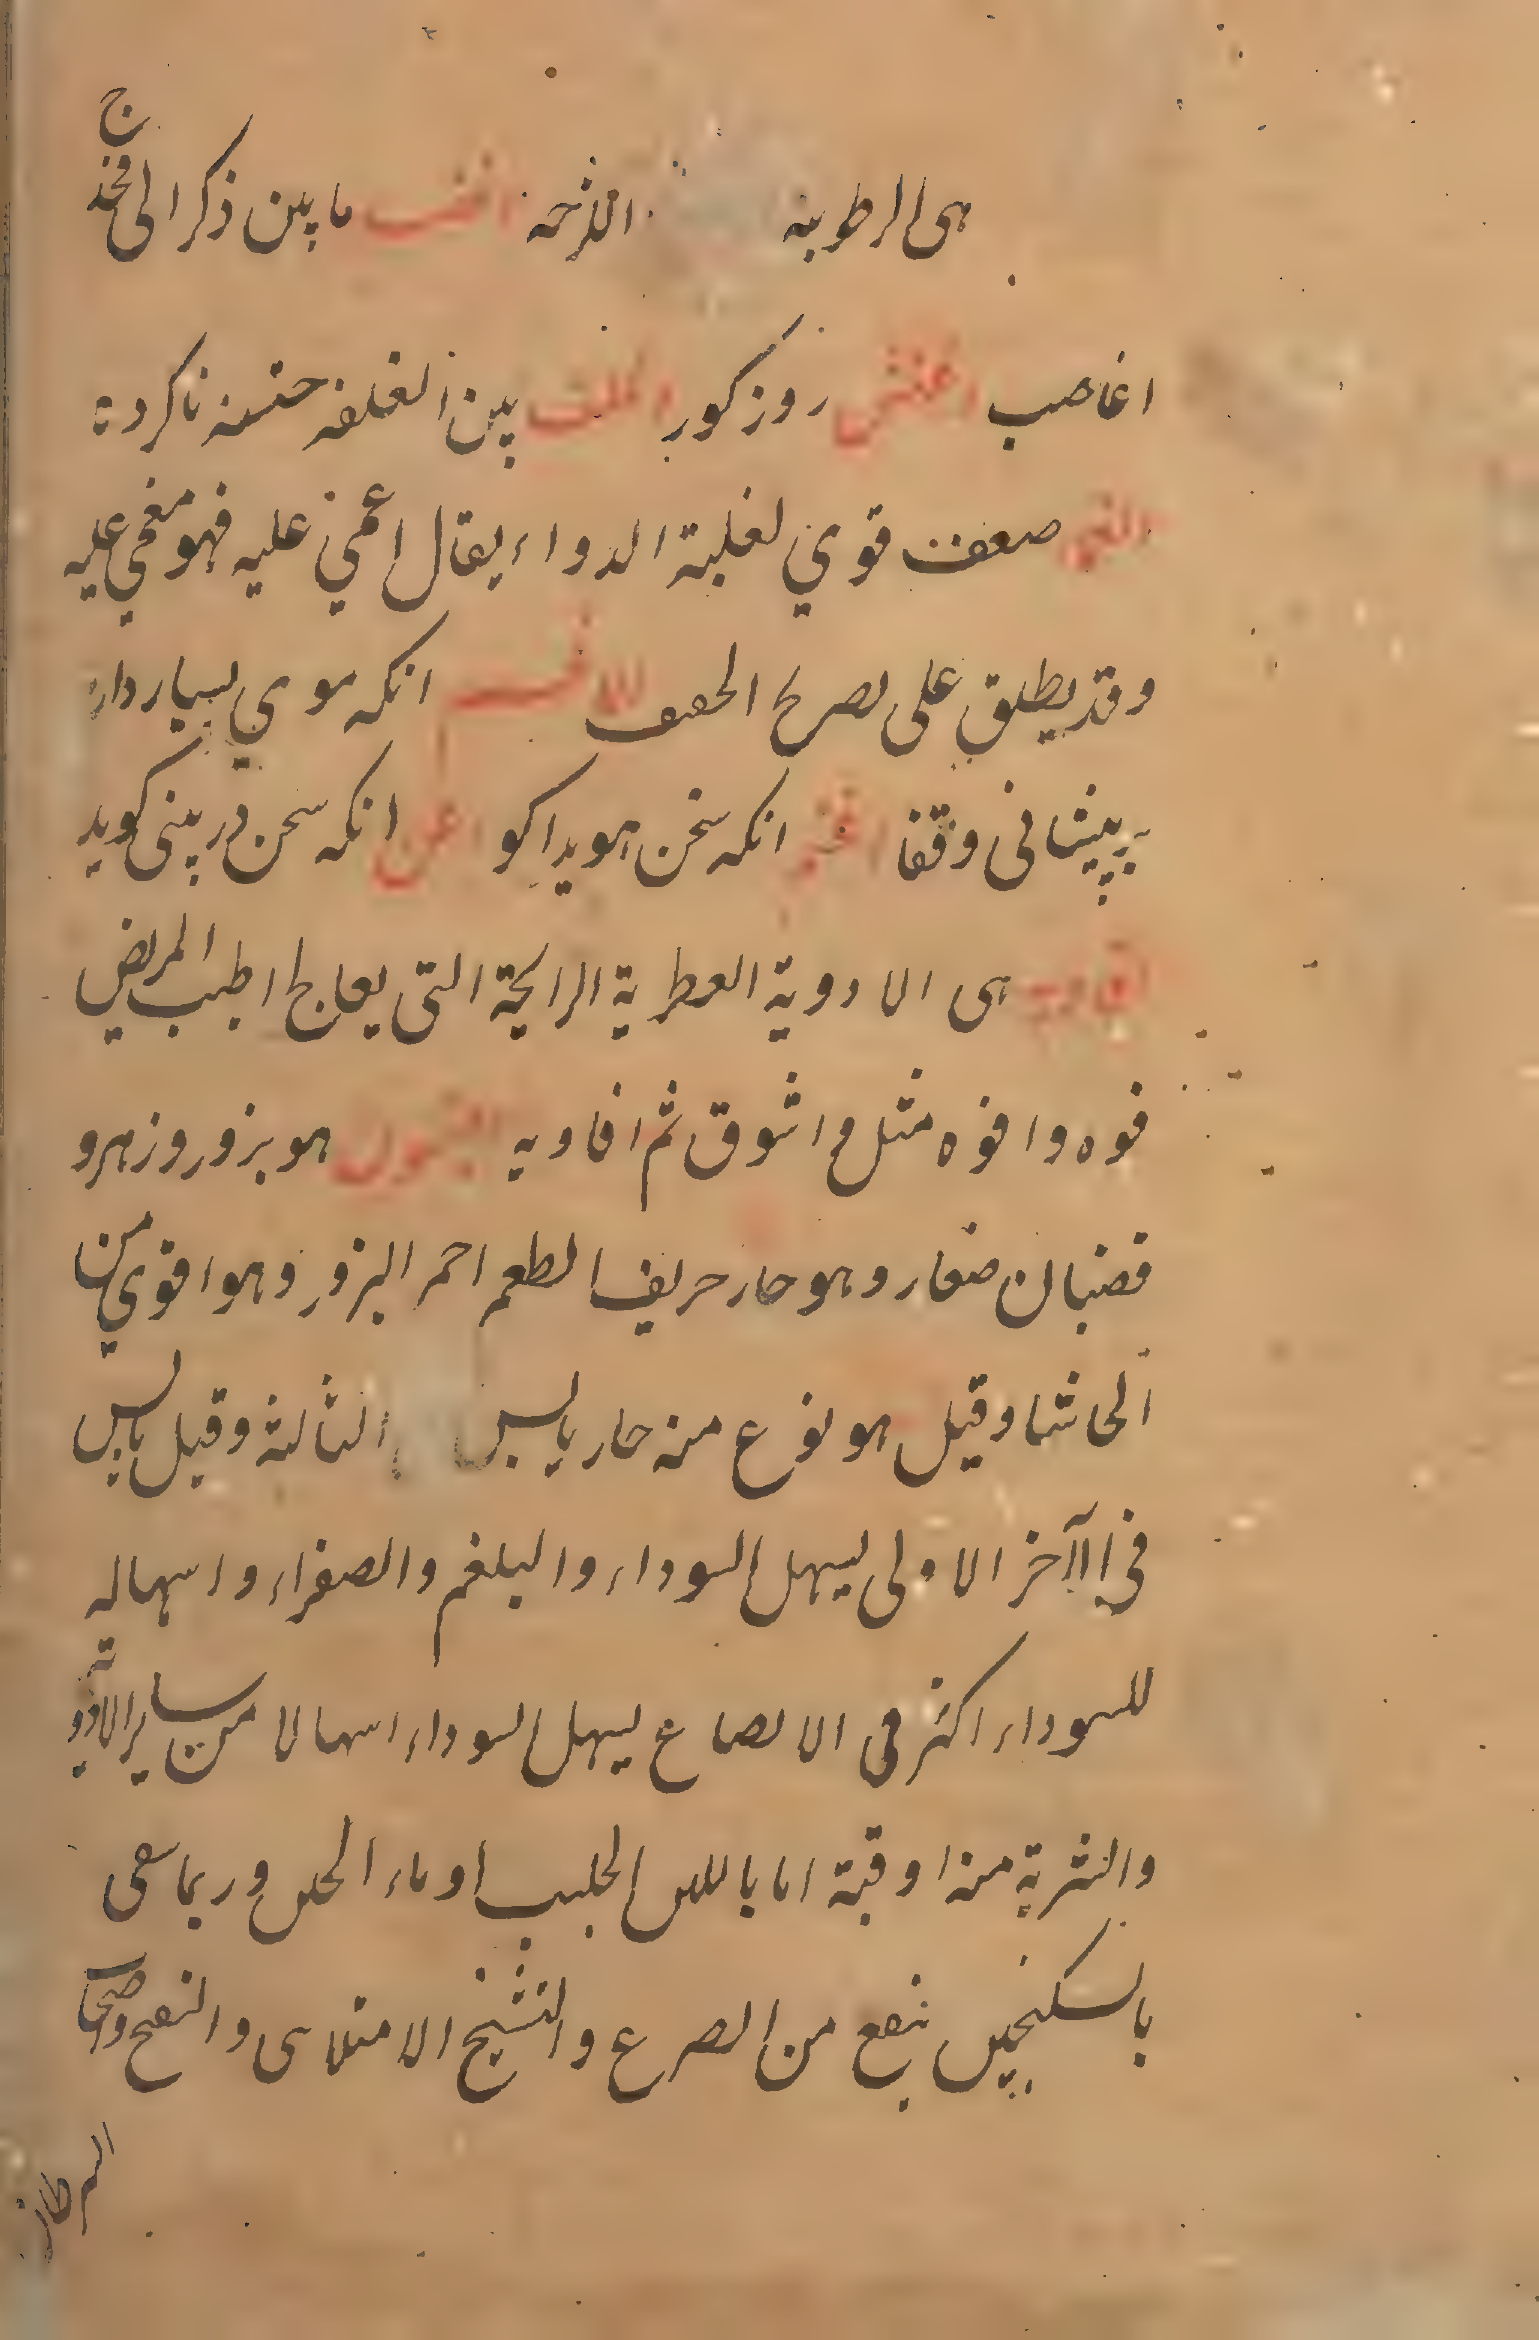 هى الرطوبه اللزجه ما بين ذكر الى فخذ ج
اغاصب اغفش روز كور اغلف بين الغلفه ختنه ناكرده
صعف قوي لغلبة الدواء يقال اغمي عليه فهو مغمي عليه
وقد يطلق على الصرح انكه موي بسيار دارد
بر پيشانى وقفا انكه سخن هويدا كو اغن انكه سخن در بينى كويد
افاويه هى الادوية العطرية الرايحة التى يعالج اطب المريض
فوه وافوه مثل سوق واشوق ثم افاويه افتيمون هو بزور وزهر و
قضبان صغار وهو حار حريف الطعم احمر البزور وهو اقوي من
الحاشا وقيل هو نوع منه حار يابس الثالثة وقيل يابس
فى الآخر الاولى يسهل السوداء والبلغم والصفراء واسهاله
للسوداء اكثر فى يسهل السوداء اسهالا من ساير الادوية
والشربة منه اوقية اما باللبن الحليب او ماء وربما سقى
بالسكنجبين ينفع من الصرع والتشنج الامتلاى والنفخ واصحاب
السرطان